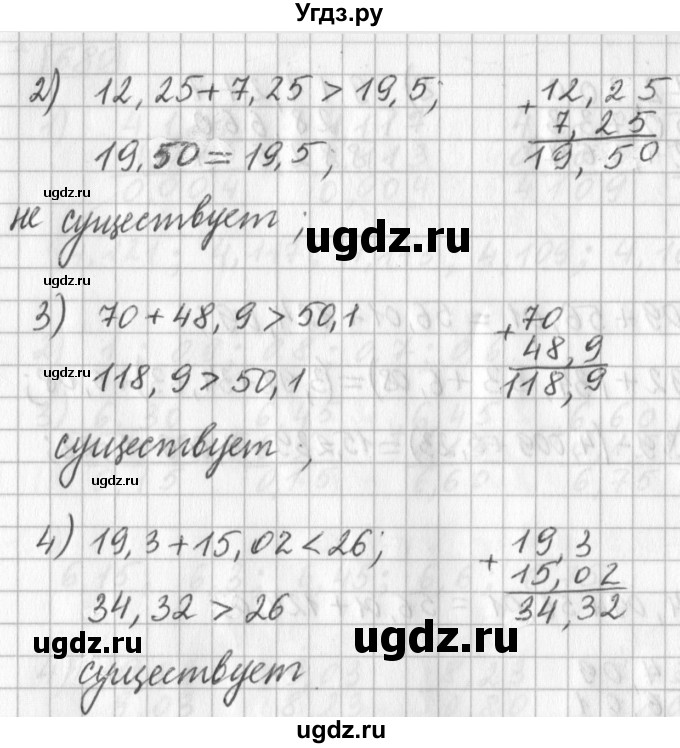 Угдз.ру
2) 12,25+7,25 > 19,5;
+ 12,25
7,25
19,50
19,50=19,5;
ugdz.ru
не существует;
ugdz.ru
ugdz.ru
3) 70+48,9>50,1
+ 70
48,9
118,9
ugdz.ru
118,9>50,1
существует;
ugdz.ru
4) 19,3+15,02<26;
+ 19,3
15,02
34,32
34,32 > 26
ugdz.ru
ugdz.ru
существует
ugdz.ru